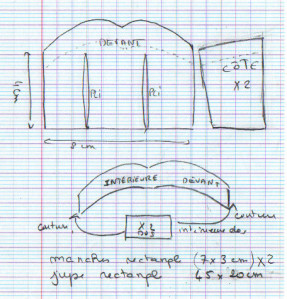 DEVANT
CÔTÉ
X 2
Pli
Pli
8 cm
INTÉRIEURE DEVANT
couture
couture
X 2
DOS
intérieure dos
manches rectangle (7x3 cm) X 2
jupe rectangle 45 x 20 cm